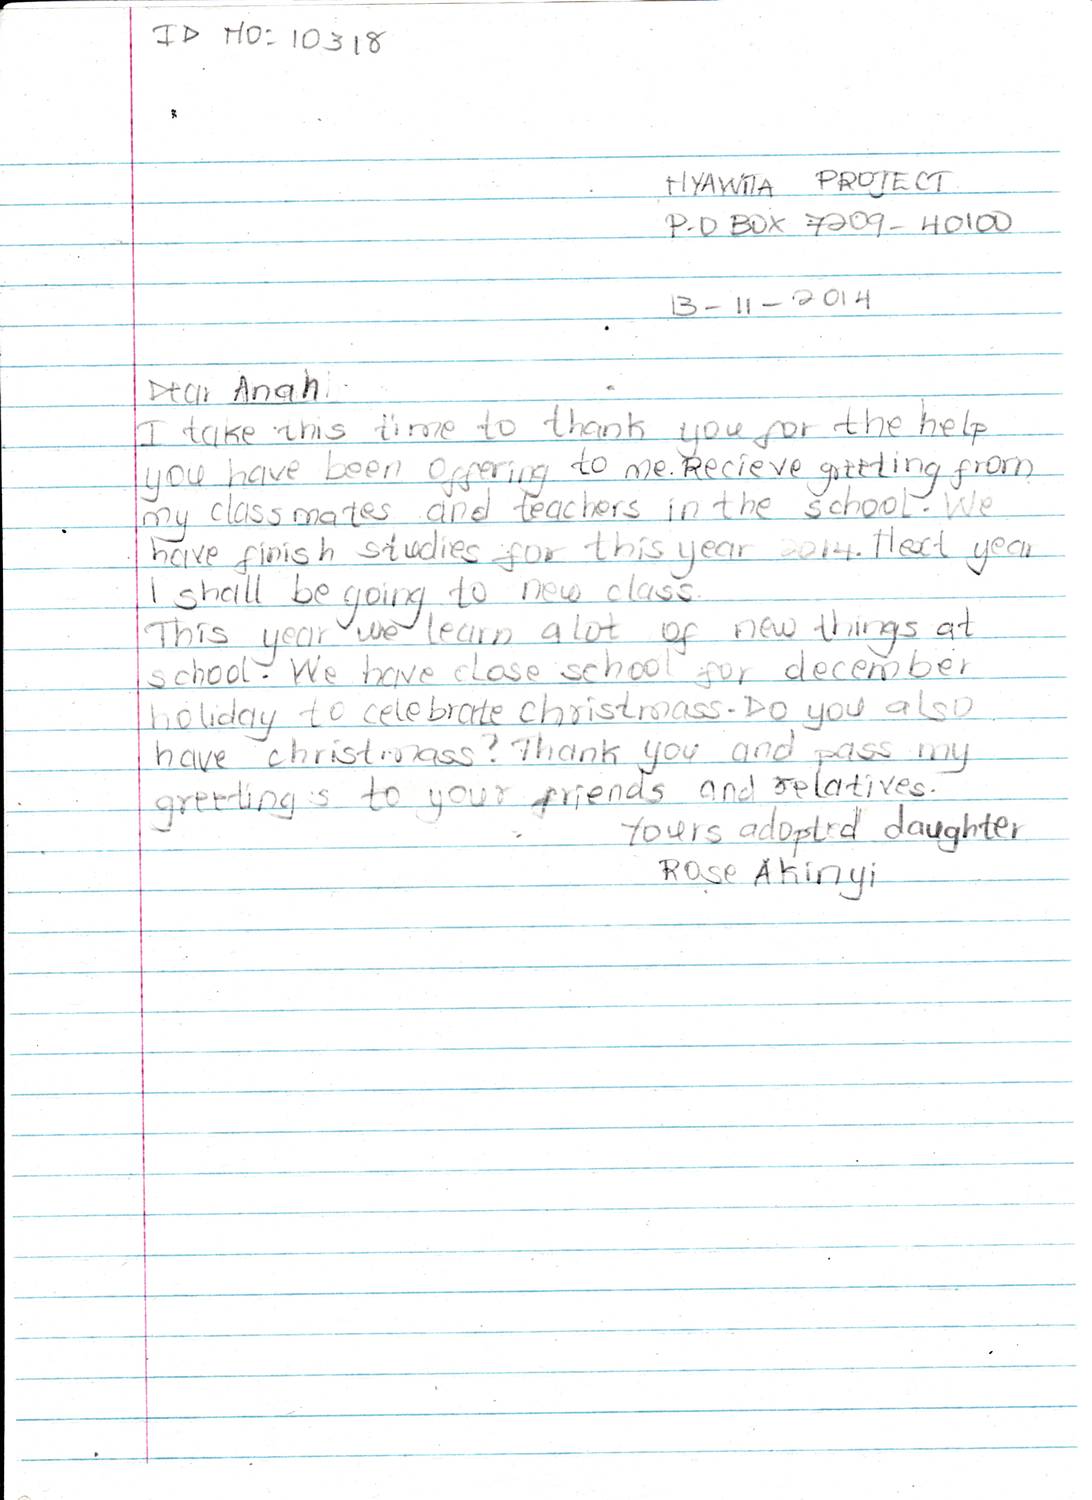 ID NO: 10318
NYAWITA PROJECT
P.O BOX 7209-40100
13-11-2014
Dear Anahi
I take this time to thank you for the help
you have been offering to me. Recieve greeting from
my classmates and teachers in the school. We
have finish studies for this year 2014. Next year
I shall be going to new class.
This year we learn alot of new things at
school. We have close school for december
holiday to celebrate christmass. Do you also
have christmass? Thank you and pass my
greeting's to your friends and relatives.
Yours adopted daughter
Rose Akinyi